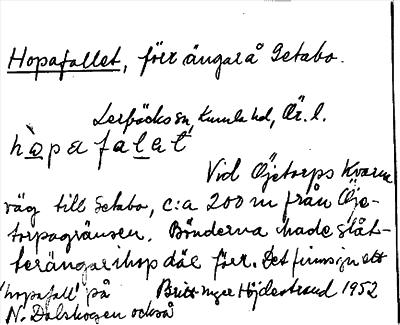 Hopafallet, förr ängar å Getabo.
Lerbäcks sn, Kumla hd, Ör. l.
hòpafalat
Vid Öjetorps Kvarn
väg till Getabo, c:a 200 m från Öje-
torpagränsen. Bönderna hade slåt-
terängar ihop där förr. Det finns ju ett
"hopafall" på Britt Inger Höjdestrand 1952
N. Dalskogen också